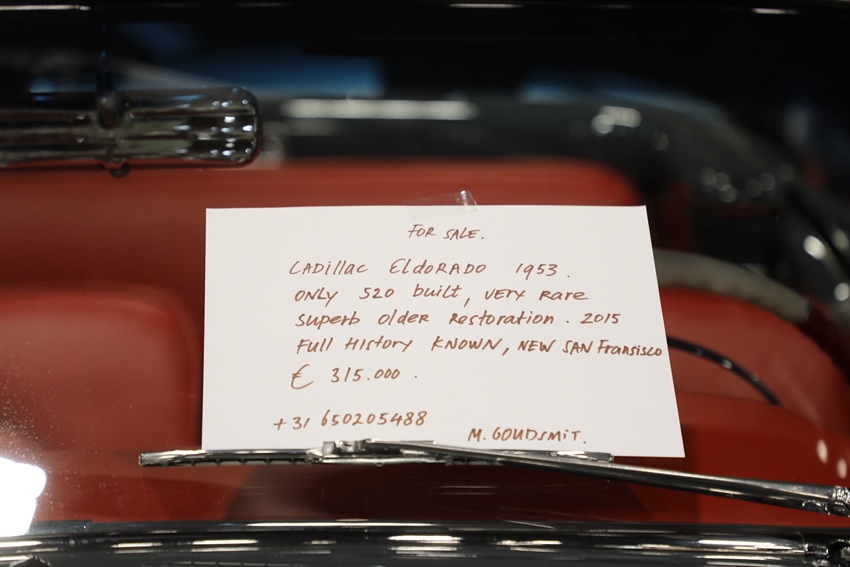 FOR SALE.
CADillac EldoRADO 1953.
ONLY 520 built, VERY RARE
Superb older Restoration. 2015
Full History KNOWN, NEW SAN Fransisco
€ 315.000.
+31 650205488
M. GOUDSMIT.